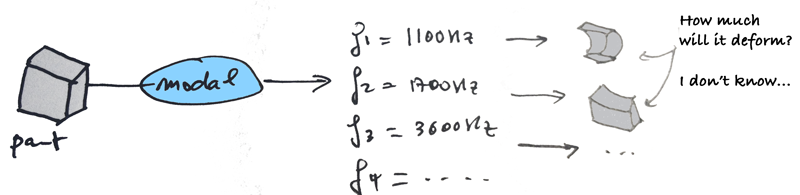 part
modal
f1 = 1100Hz
f2 = 1700Hz
f3 = 3600Hz
f4 = .....
...
How much
will it deform?
I don't know...